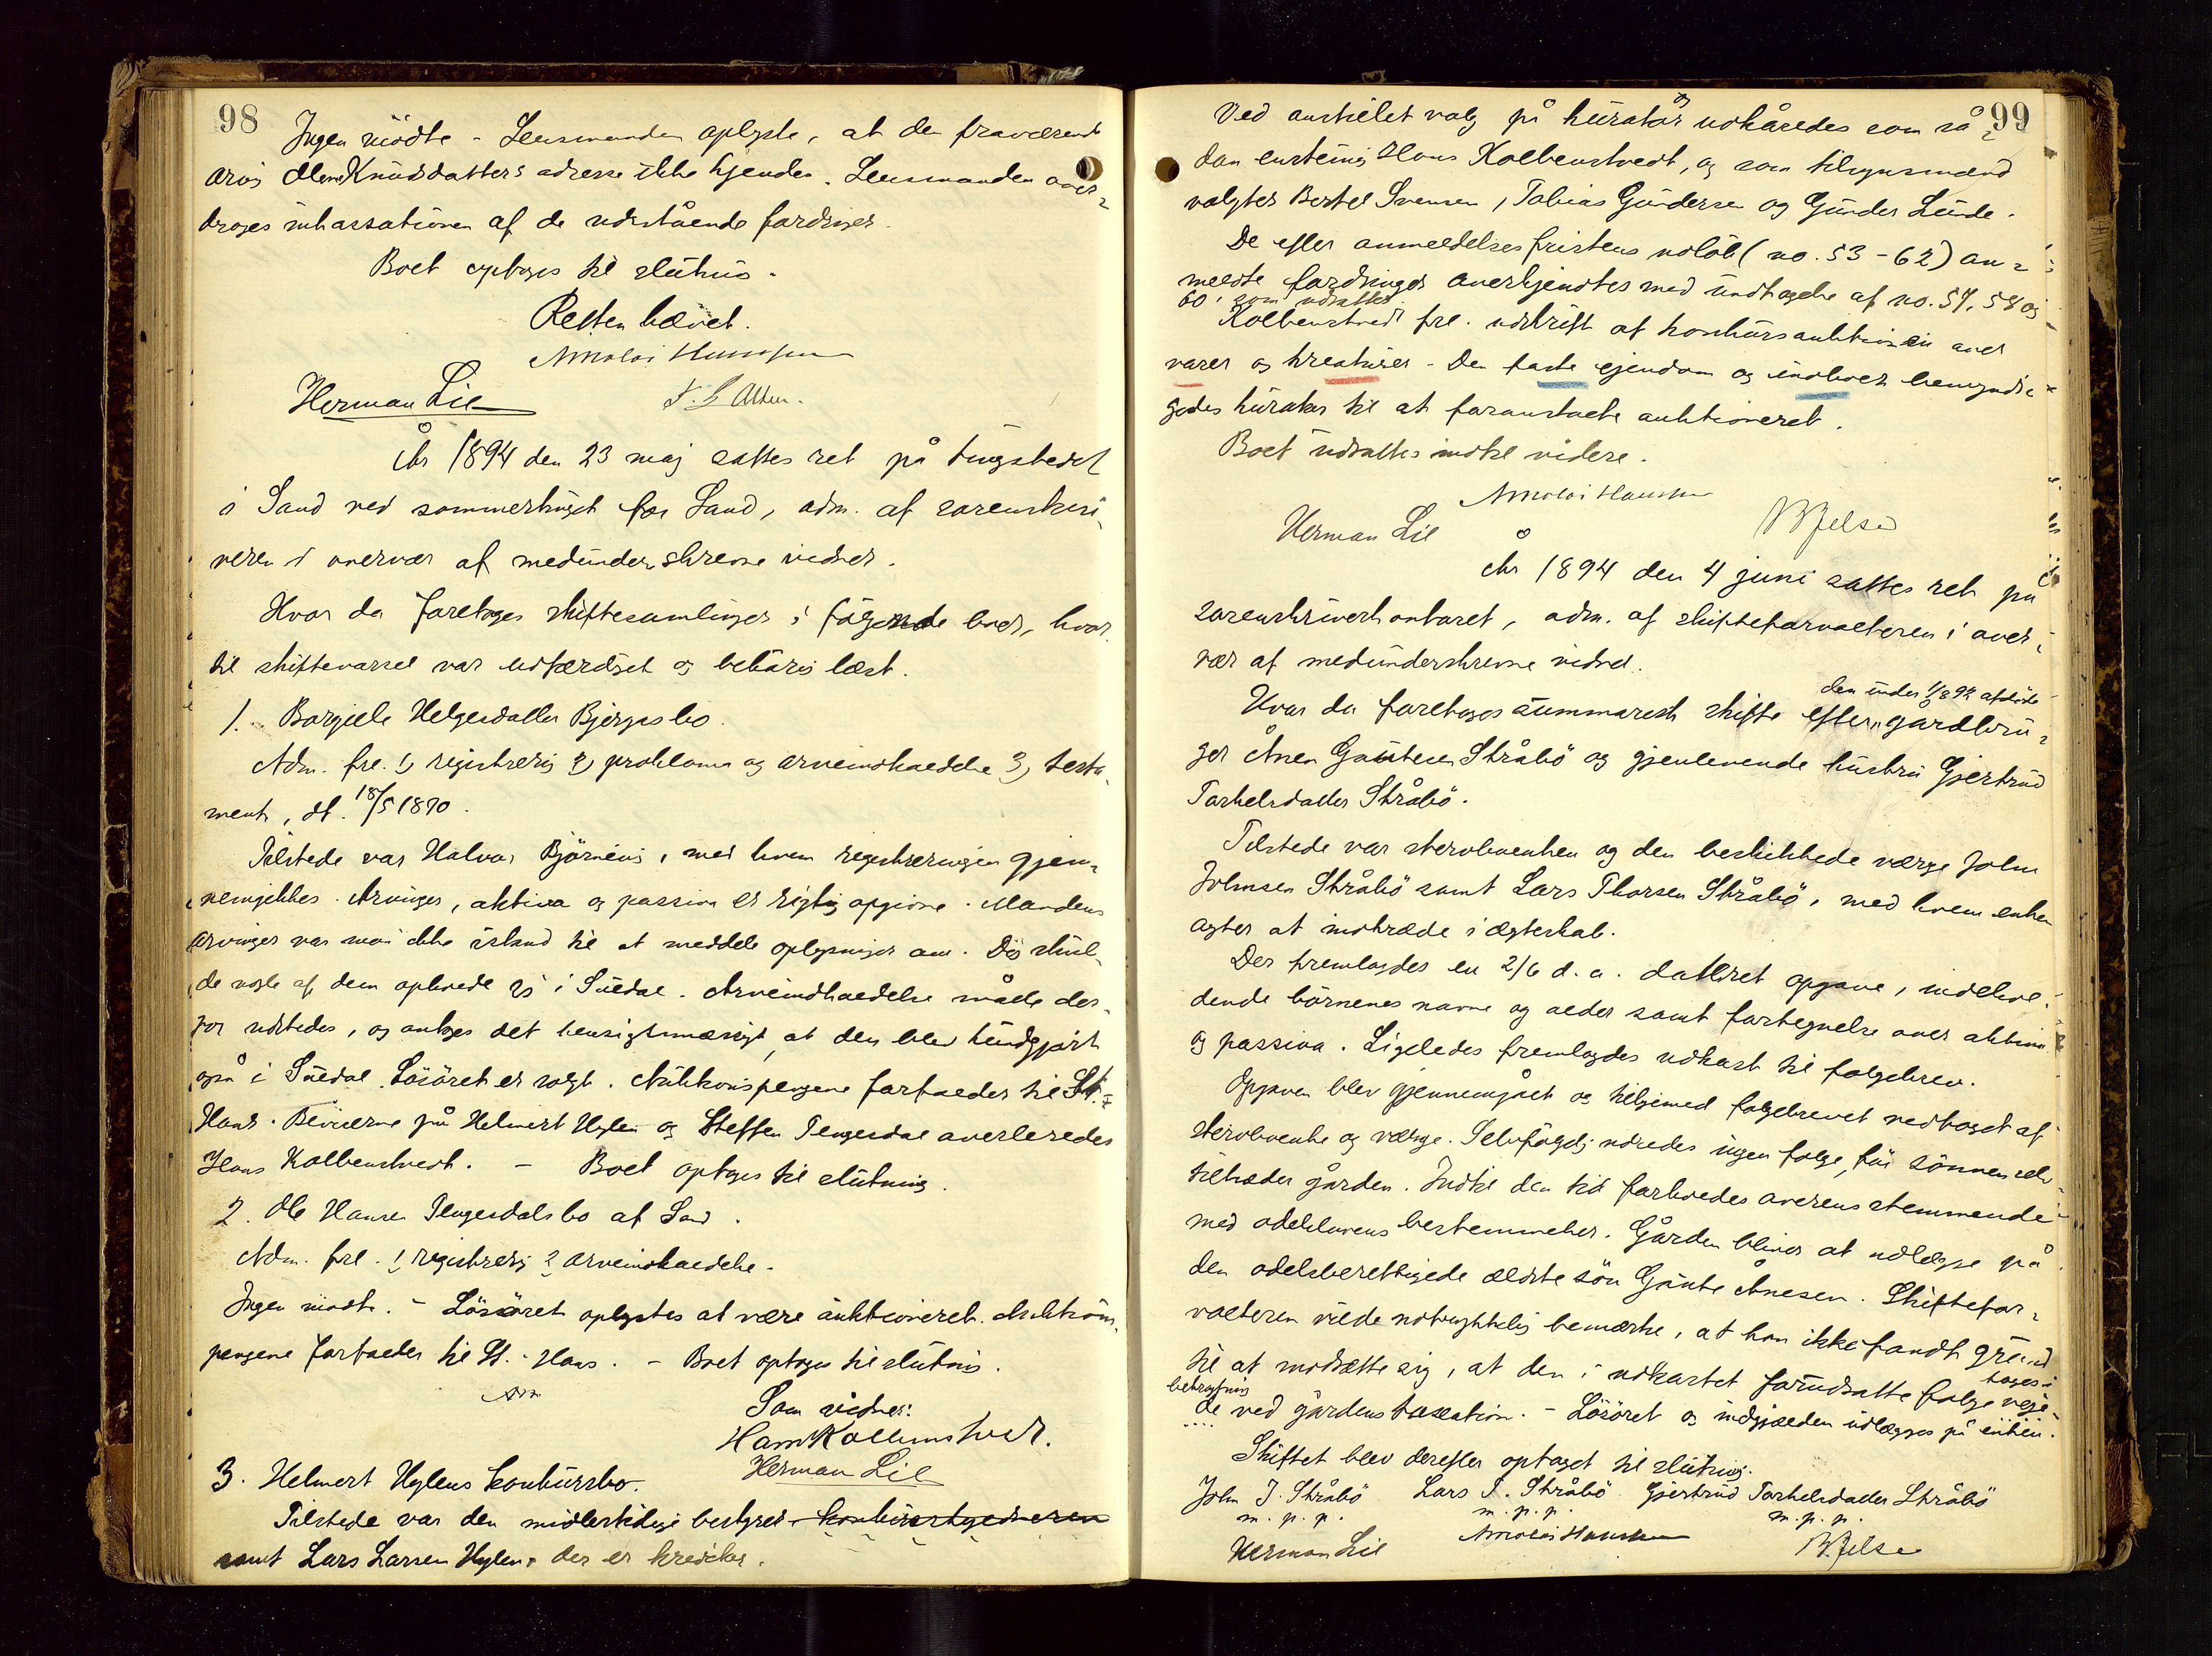 98
Ingen mödte - Lensmanden oplyste, at den fraværende
arvi Knudsdatters adresse ikke kjendes. Lensmanden over-
droges inkassationen af de udestående fordringer.
Boet optoges til slutning.
Retten hævet.
Nikolai Hanssen
Herman Lie
År 1894 den 23 maj sattes ret på tingstedet
i Sand ved sommertinget for Sand, adm. af sorenskri-
veren i overvær af medunderskrevne vidner.
Hvor da foretoges skiftesamlinger i fölgende boer, hvor-
til skiftevarsel var udfærdiget og behörig læst.
1. Borgille Helgesdatter Bjergas bo.
Adm. fre. 1) registrering 2) proklama og arveindkaldelse 3) testa-
ment, dt. 18/5 1870.
Tilstede var Halvor Björnevig, med hvem registreringen gjen-
nemgikkes. Arvinger, aktiva og passiva er rigtig opgivne. Mandens
arvinger var man ikke istand til at meddele oplysninger om. Dog skul-
de nogle af dem opholde sig i Suldal. Arveindkaldelse måtte der-
for udstedes, og antoges det hensigtsmæssigt, at den blev kundgjort
også i Suldal. Lösöret er solgt. Auktionspengene forfalder til St.
Hans. Beviserne på Helmert Hylen og Steffen Tengesdal overleredes
Hans Kolbenstvedt. - Boet optoges til slutning.
2. Ole Hansen Tengesdals bo af Sand.
Adm. fre. 1) registrering 2) arveindkaldelse.
Ingen mödte. - Lösöret oplystes at være auktioneret. Auktions-
pengene forfalder til St. Hans. - Boet optoges til slutning.
Som vidner:
Hans Kolbenstvedt.
Herman Lie
3. Helmert Hylens konkursbo.
Tilstede var den midlertidige bestyrer
samt Lars Larsen Hylen, der er kreditor.
99
Ved anstillet valg på kurator udkåredes som så-
dan enstemig Hans Kolbenstvedt, og som tilsynsmænd
valgtes Bertel Svensen, Tobias Gundersen og Gunder Lunde.
De efter anmeldelsesfristens udlöb (no. 53-62) an-
meldte fordringer anerkjendtes med undtagelse af no. 57, 58 og
60, som udsattes.
Kolbenstvedt fre. udskrift af konkursauktionen over
varer og kreaturer. Den faste ejendom og indboet bemyndi-
gedes kurator til at foranstalte auktioneret.
Boet udsattes indtil videre.
Nikolai Hanssen
Herman Lie
B Jelsa
År 1894 den 4 juni sattes ret på
sorenskriverkontoret, adm. af skifteforvalteren i over-
vær af medunderskrevne vidner.
Hvor da foretoges summarisk skifte efter den under 1/8 92 afdöde gårdbru-
ger Ånen Gautesen Stråbö og gjenlevende hustru Gjertrud
Torkelsdatter Stråbö.
Tilstede var stervboenken og den beskikkede værge John
Johnsen Stråbö samt Lars Thorsen Stråbö, med hvem enken
agter at indtræde i ægteskab.
Der fremlagdes en 2/6 d. a. dateret opgave, indehol-
dende börnenes navne og alder samt fortegnelse over aktiva
og passiva. Ligeledes fremlagdes udkast til folgebrev.
Opgaven blev gjennemgået og tilligemed folgebrevet vedtaget af
stervboenke og værge. Selvfölgelig udredes ingen folge, för sönnen selv
tiltræder gården. Indtil den tid forholdes overensstemmende
med odelslovens bestemmelser. Gården bliver at udlægge på
den odelsberettigede ældste sön Gaute Ånesen. Skiftefor-
valteren vilde udtrykkelig bemærke, at han ikke fandt grund
til at modsætte sig, at den i udkastet forudsatte folge toges i
betragtning
ved gårdens taxation. - Lösöret og indgjælden udlægges på enken.
Skiftet blev derefter optaget til slutning.
John J. Stråbö Lars T. Stråbö Gjertrud Torkelsdatter Stråbö
m. p. p. m. p. p. m. p. p.
Herman Lie Nikolai Hanssen B. Jelsa